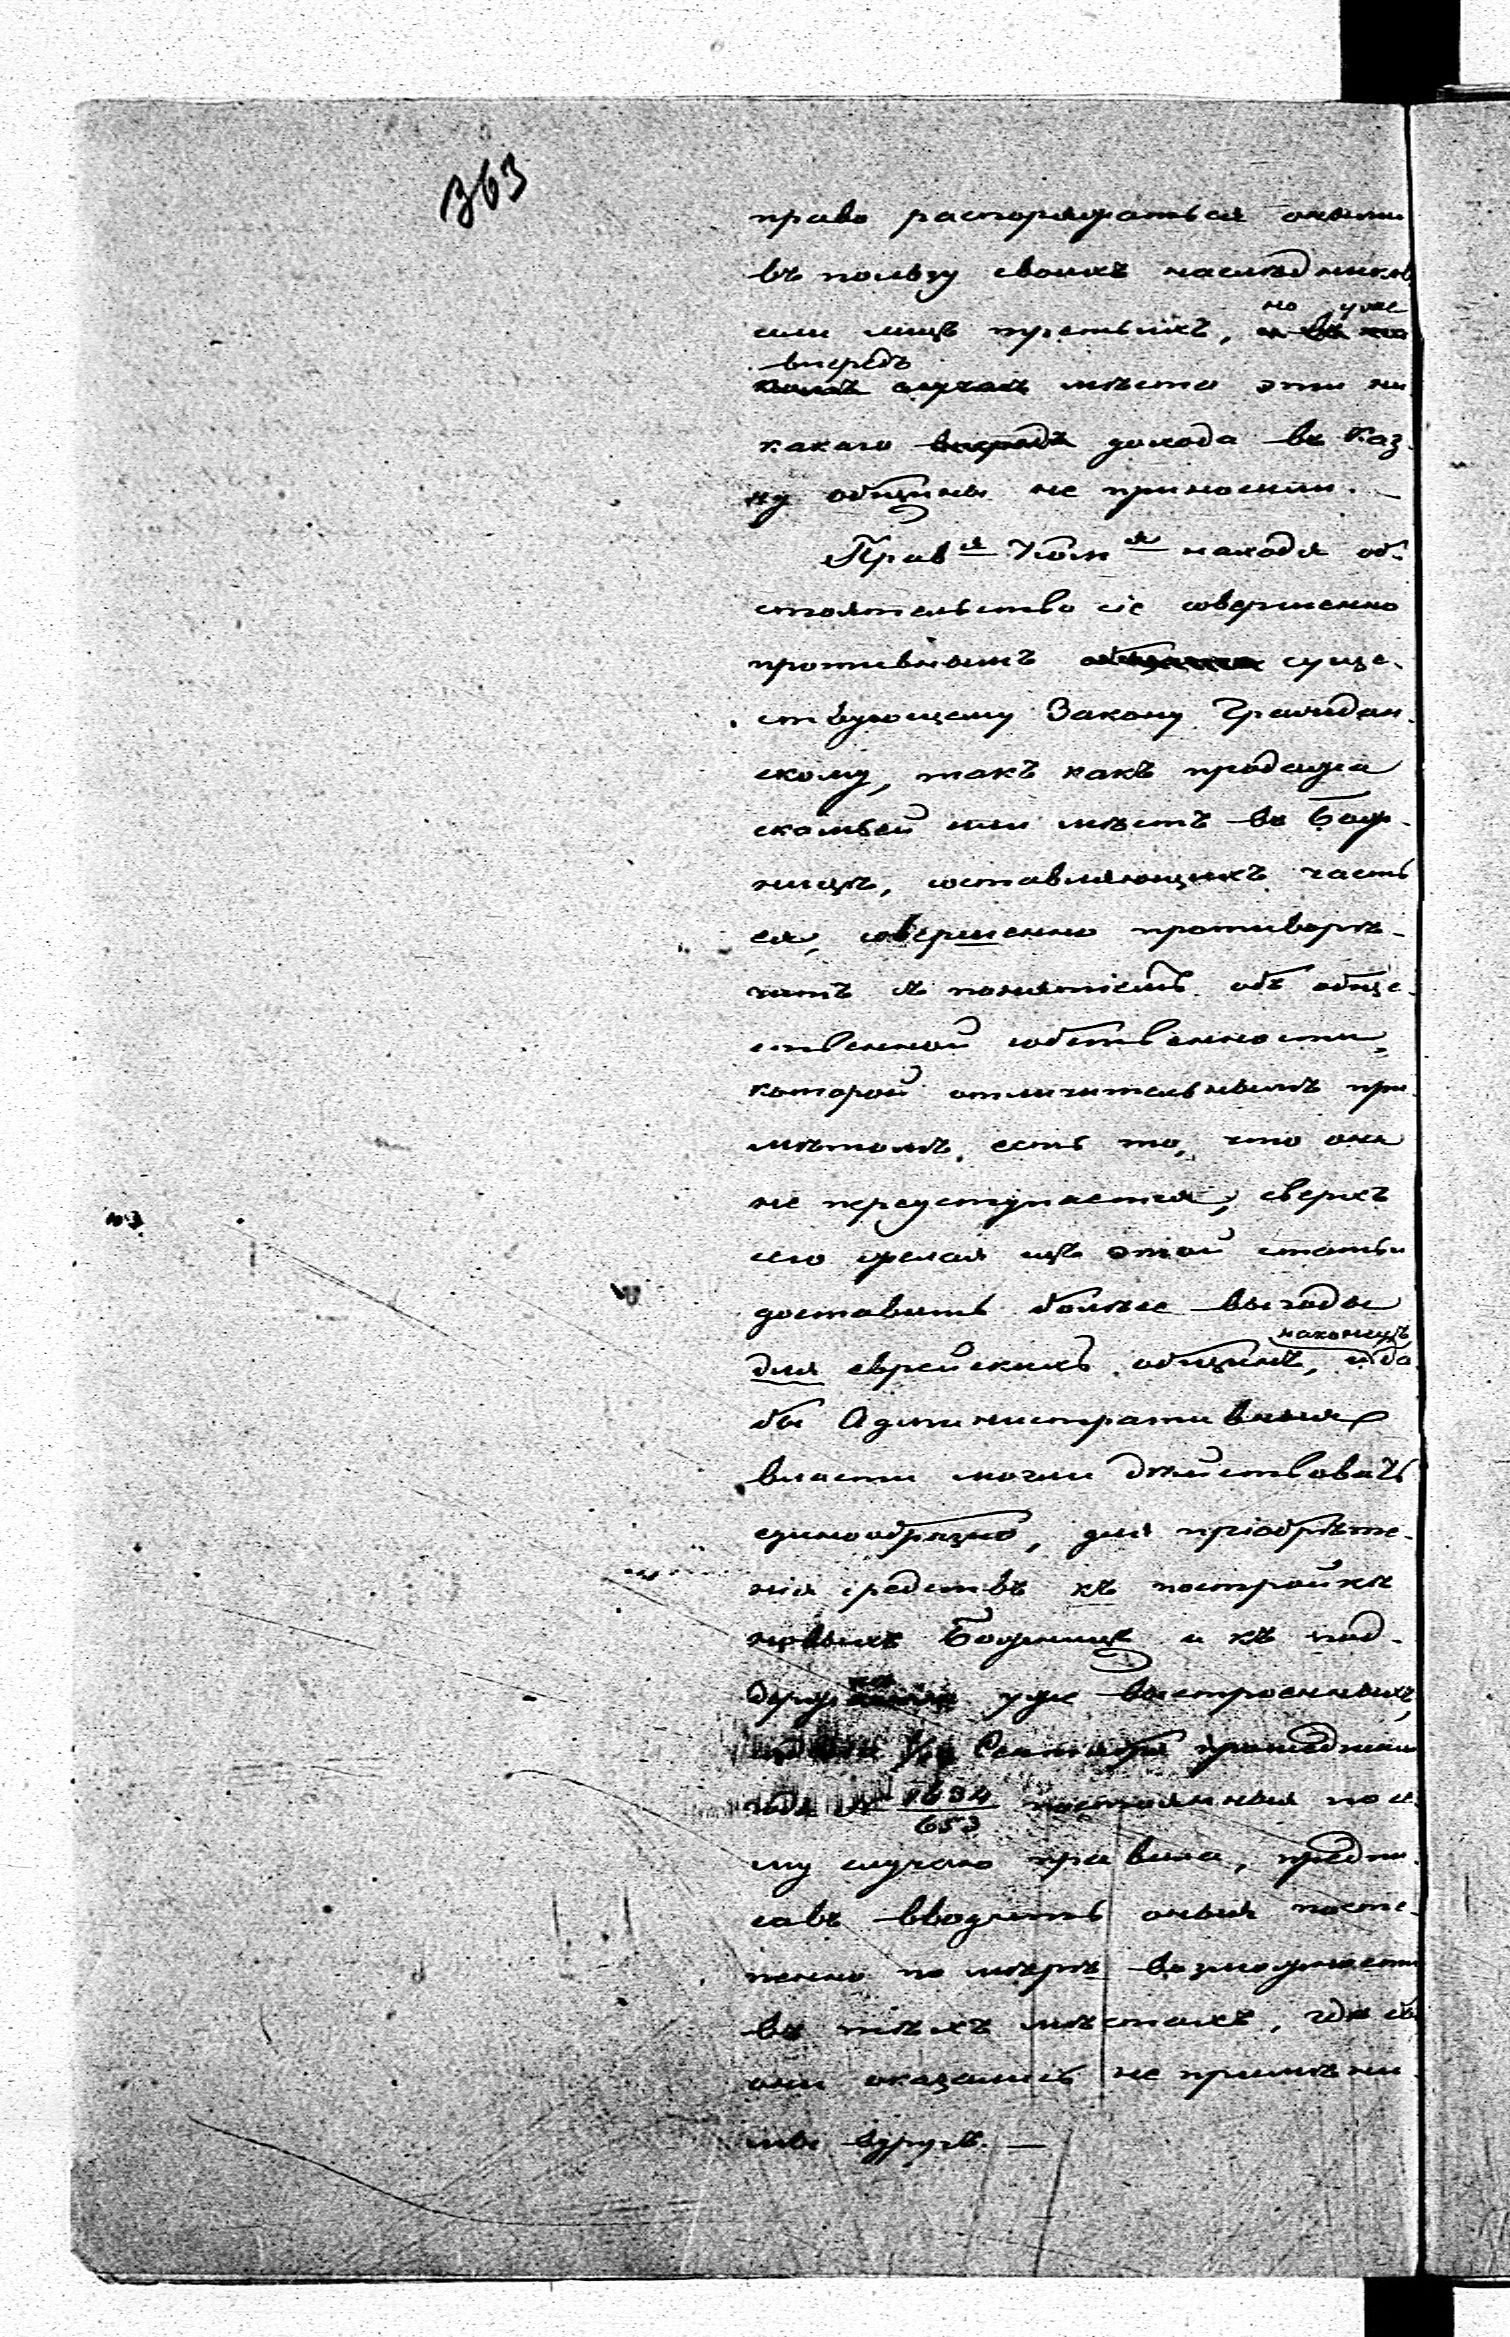 363
право распоряжаться оными
въ пользу своихъ наслѣдниковъ
или лицъ третьихъ, но уже
впередъ мѣста эти ни
какаго дохода въ Каз-
ну общины не приносили. —
Правⁿ Комⁿ находя об-
стоятельство сіе совершенно
противнымъ суще-
ствующему Закону Граждан-
скому, такъ какъ продажа
скамьей или мѣстъ въ Бож-
ницѣ, составляющихъ часть
ея, совершенно противорѣ-
читъ понятіемъ объ обще-
ственной собственности,
которой отличительнымъ при-
мѣтомъ есть то, что она
не переуступается, сверхъ
сего желая изъ этой статьи
доставить болѣе выгоды
для еврейскихъ общинъ, наконецъ да-
бы Административныя
власти могли дѣйствовать
единообразно, для пріобрѣте-
нія средствъ къ постройкѣ
новыхъ Божницъ и къ под-
держкѣ уже выстроенныхъ,
Сентября прошедшаго
года № 1634/653 постоянныя по се-
му случаю правила, предпи-
савъ вводить оныя посте-
пенно по мѣрѣ возможности
въ тѣхъ мѣстахъ, где бы
они оказались не примѣни-
мы вдругъ. —